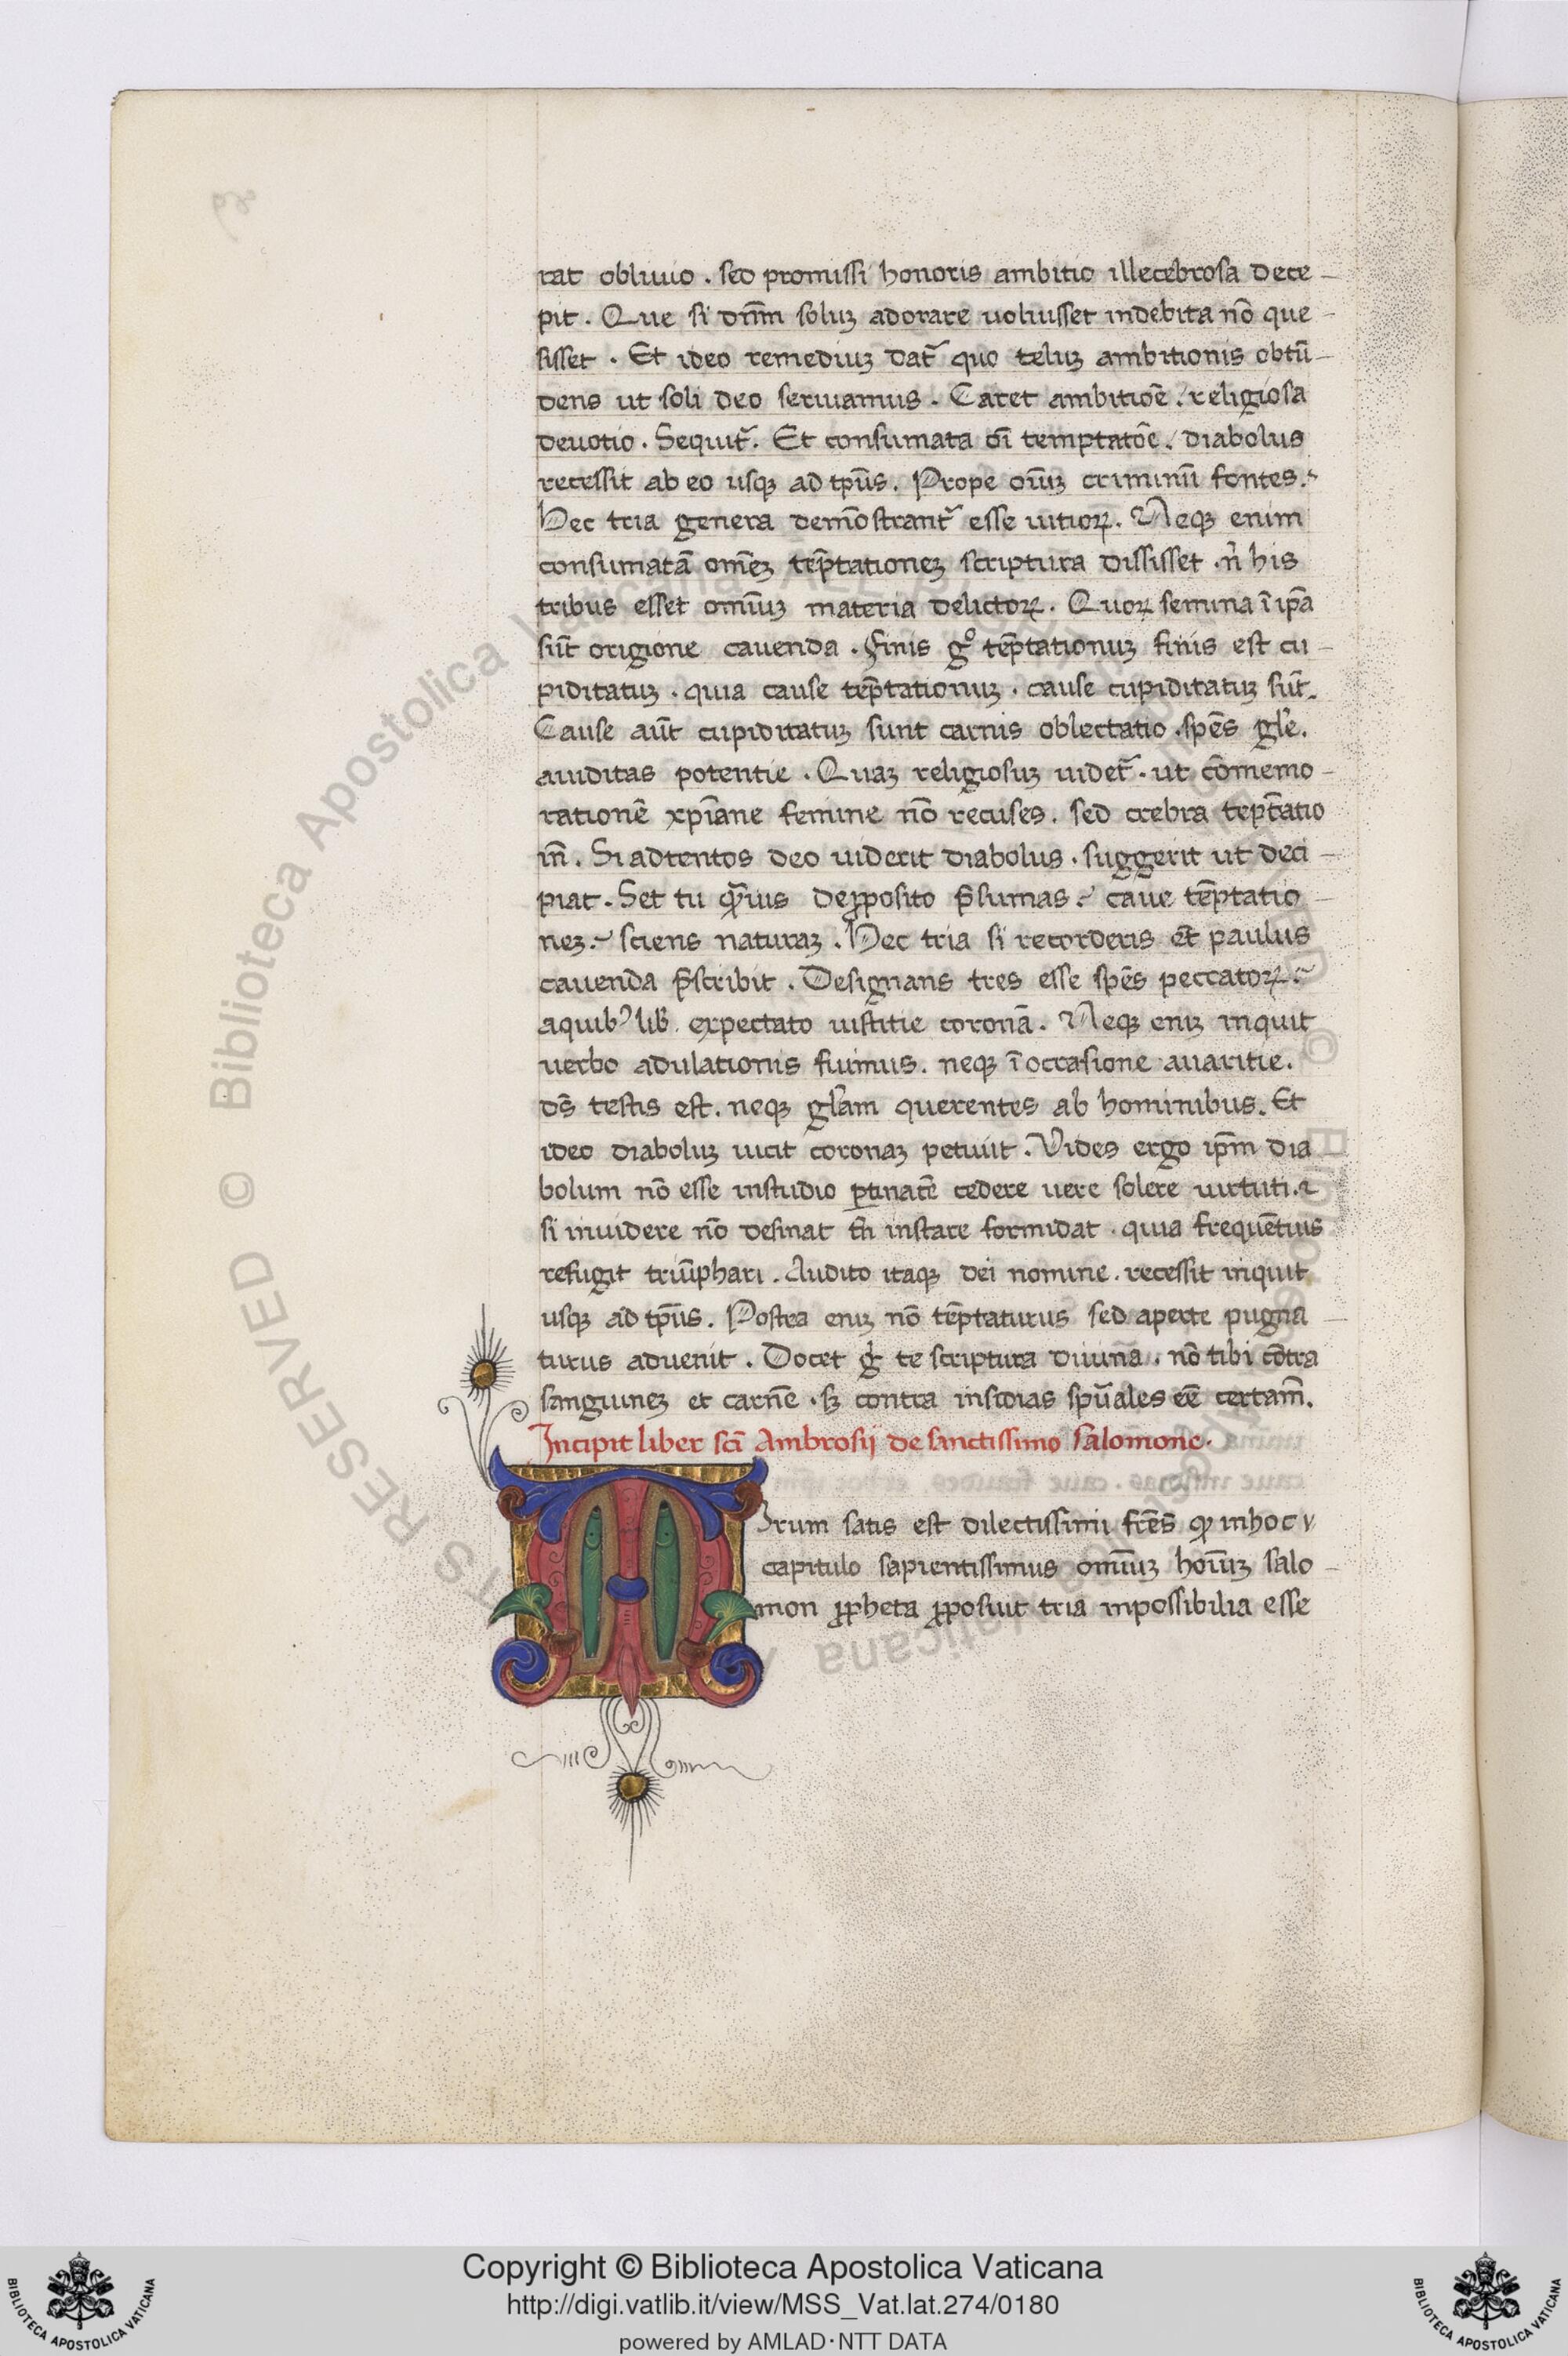 rat obliuio . sed promissi honoris ambitio illecebrosa dece-
pit . Que si dn̄m soluꝫ adorare uoluisset indebita nō que-
sisset . Et ideo remediuꝫ dat᷑ quo teluꝫ ambitionis obtū-
dens ut soli deo seruiamus . Caret ambitiōe / religiosa
deuotio . Sequit᷑. Et consumata oī temptatōe / diabolus
recessit ab eo usqꝫ ad tp̄us . Prope oīuꝫ criminū fontes .
Hec tria genera demōstrant᷑ esse uitioꝝ . Neqꝫ enim
consumatā om̄eꝫ tep̄tationeꝫ scriptura dississet . n̄ his
tribus esset omīuꝫ materia delictoꝝ . Quoꝝ semina ī ip̄a
sūt origione cauenda . Finis gͦ tep̄tationuꝫ finis est cu-
piditatuꝫ . quia cause tep̄tationuꝫ . cause cupiditatuꝫ sūt .
Cause aūt cupiditatuꝫ sunt carnis oblectatio . spēs gl̄e .
auiditas potentie . Quaꝫ religiosuꝫ uidet᷑ . ut cōmemo-
rationē xp̄iane femine nō recuses . sed crebra tept̄atio
m̄ . Si adtentos deo uiderit diabolus . suggerit ut deci-
piat . Set tu qͣ̄uis de ꝓposito p̄sumas . caue tēptatio-
neꝫ . sciens naturaꝫ . Hec tria si recorderis et̄ paulus
cauenda p̄scribit . Designans tres esse spēs peccatoꝝ .
aquibꝰ lib̄ . expectato iustitie coronā . Neqꝫ eniꝫ inquit
uerbo adulationis fuimus . neqꝫ ī occasione auaritie .
ds̄ testis est . neqꝫ gl̄am querentes ab hominibus . Et
ideo diaboluꝫ uicit coronaꝫ petiuit . Vides ergo ip̄m dia
bolum nō esse instudio ꝑtinacē cedere uere solere uirtuti . ⁊
si inuidere nō desinat tn̄ instare formidat . quia frequētius
refugit triūphari . Audito itaqꝫ dei nomine . recessit inquit
usqꝫ ad tp̄us . Postea eniꝫ nō tēptaturus sed aperte pugna-
turus aduenit . Docet g̊ te scriptura diuina . nō tibi cōtra
sanguineꝫ et carnē . sꝫ contra insidias spūales eē certam̄ .
Incipit liber scī Ambrosij de sanctissimo salomone .
Mirum satis est dilectissimi frēs qꝫ inhoc
capitulo sapientissimus omīuꝫ hoīuꝫ salo-
mon ꝓpheta ꝓposuit tria inpossibilia esse
Copyright © Biblioteca Apostolica Vaticana
http://digi.vatlib.it/view/MSS_Vat.lat.274/0180
powered by AMLAD·NTT DATA
BIBLIOTECA APOSTOLICA VATICANA
BIBLIOTECA APOSTOLICA VATICANA